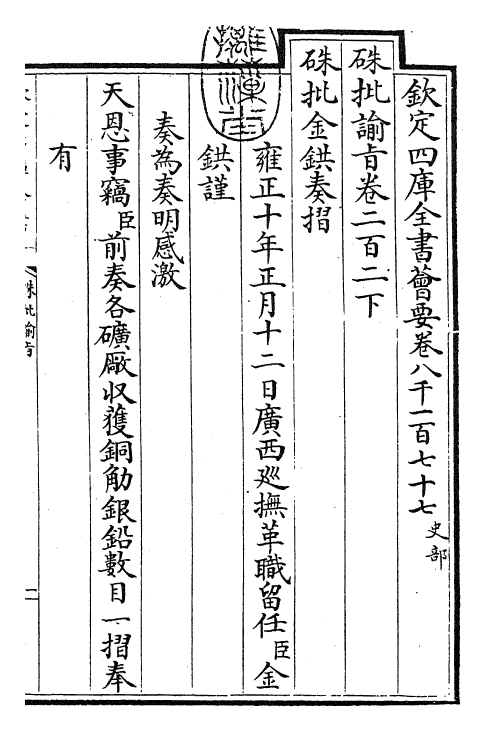 欽定四庫全書薈要卷八千一百七十七 史部
硃批諭旨卷二百二下
硃批金鉷奏摺
雍正十年正月十二日廣西廵撫革職留任臣金
鉷謹
奏為奏明感激
天恩事竊臣前奏各礦厰収獲銅觔銀鉛數目一摺奉
有
硃批諭旨